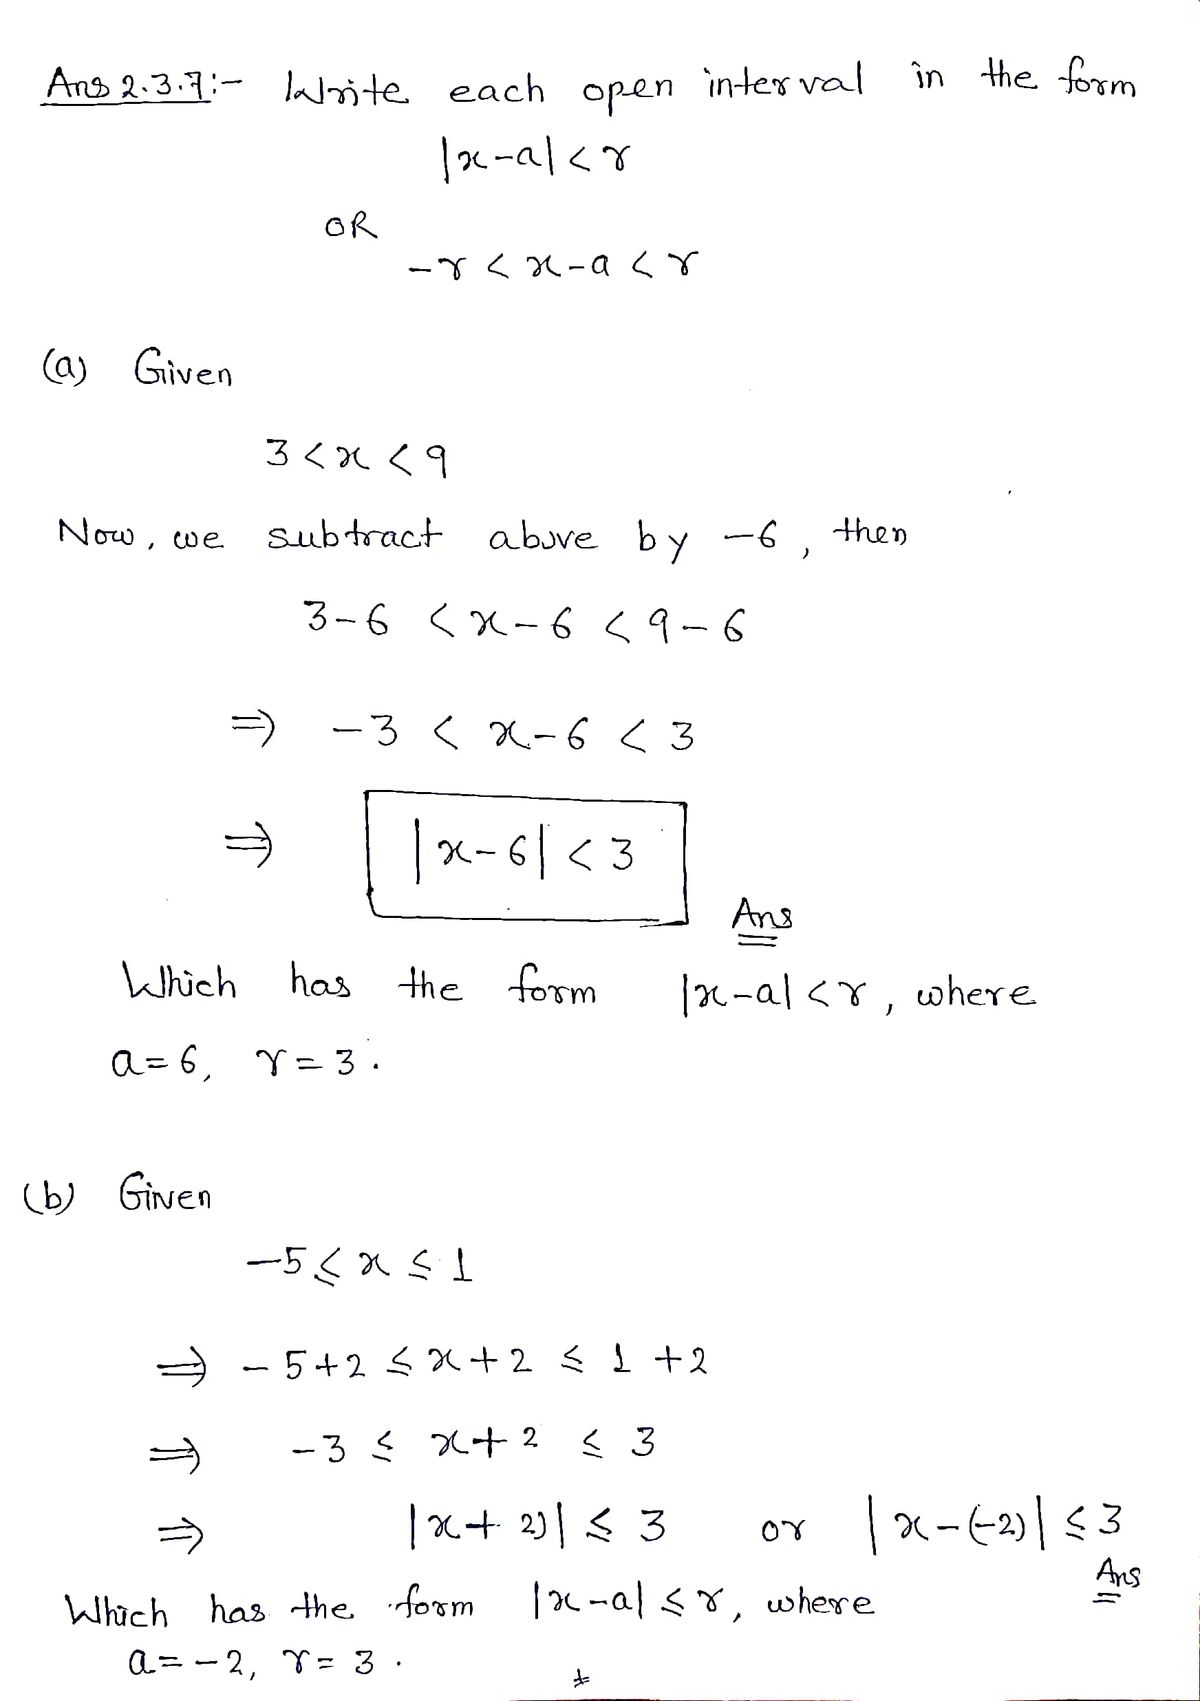 Ans 2.3.7:- Write each open interval in the form
|x-a| < r
OR
-r < x-a < r
(a) Given
3 < x < 9
Now, we subtract above by -6, then
3-6 < x-6 < 9-6
⇒ -3 < x-6 < 3
⇒ |x-6| < 3
Ans
Which has the form |x-a| < r, where
a=6, r=3.
(b) Given
-5 ≤ x ≤ 1
⇒ -5+2 ≤ x+2 ≤ 1+2
⇒ -3 ≤ x+2 ≤ 3
⇒ |x+2)| ≤ 3 or |x-(-2)| ≤ 3
Ans
Which has the form |x-a| ≤ r, where
a=-2, r=3.